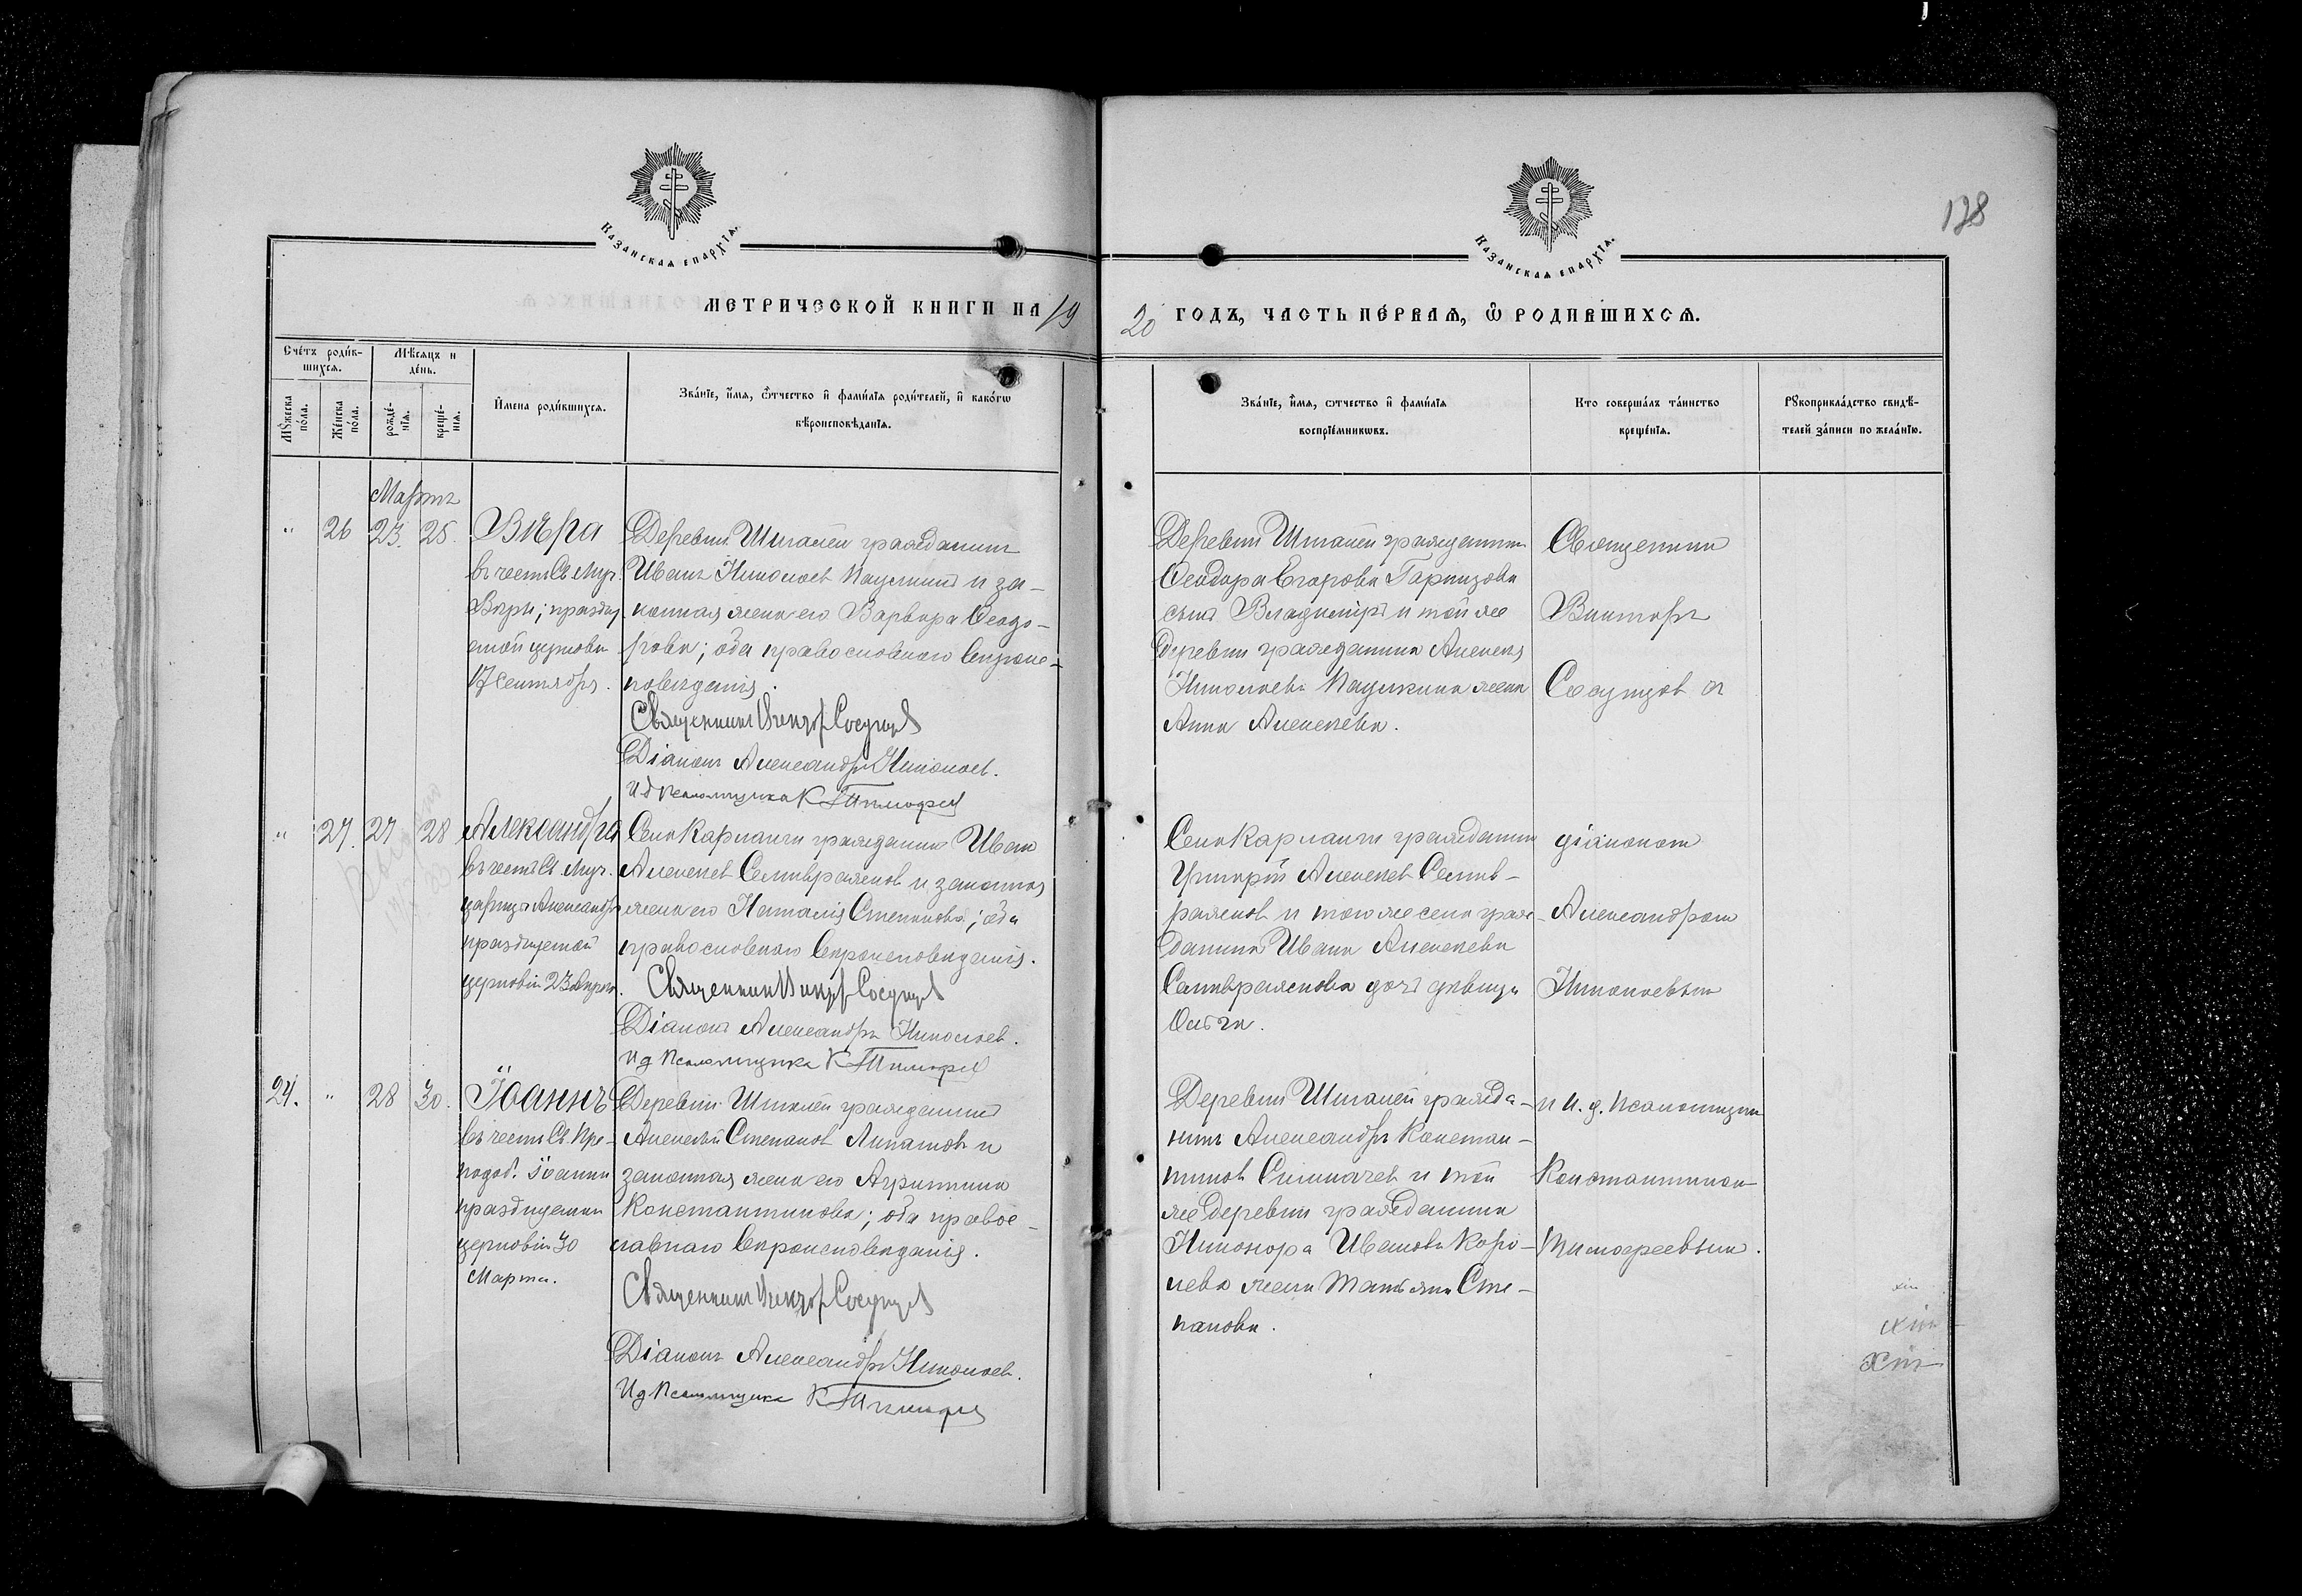 Казанская епархїя.
Казанская епархїя.
128
МЕТРИЧЕСКОЙ КНИГИ НА 19
20 ГОДЪ, ЧАСТЬ ПЕ́РВАЯ, Ѽ РОДИВШИХСЯ.
Сче́тъ роди́в-
шихся.
Мѣ́сяцъ и
де́нь.
Мꙋ́жеска
по́ла.
Же́нска
по́ла.
рожде́-
нїя.
креще́-
нїя.
И҆мена роди́вшихся.
Зва́нїе, и҆́мя, ѻ҆́тчество и҆ фами́лїя роди́телей, и҆ како́гѡ
вѣроисповѣ́данїя.
Зва́нїе, и҆́мя, ѻ҆́тчество и҆ фами́лїя
воспрїе́мникѡвъ.
Кто соверша́лъ та́инство
креще́нїя.
Рꙋкоприкла́дство свидѣ́-
телей за́писи по жела́нїю.
Мартъ
" 26 23. 25. Вѣра
въ честь Св Муч.
Вѣры; празду
емой церковью
17 Сентября.
Деревни Шигалей гражданинъ
Иванъ Николаев и за-
конная жена его Варвара Феодо-
рова; оба православного вѣроис-
повѣданія.
Священник Виктор Сосунцов
Діаконъ Александръ Николаев.
И д Псаломщика К Тимофеев
Деревни Шигалей гражданина
Феодора Егорова
сынъ Владиміръ и той же
деревни гражданина Алексея
Николаева жена
Анна Алексеева.
Священник
Виктор
Сосунцов с
" 27. 27 28 Александра
въ честь Св Муч.
царицы Александры
празднуемой
церковію 23 Апреля.
Села гражданинъ Иван
Алексеев и законная
жена его Наталія Степанова; оба
православного вѣроисповѣданія.
Священник Виктор Сосунцов
Діаконъ Александръ Николаев.
И д Псаломщика К Тимофеев
Села гражданин
Григорій Алексеев
и того же села граж-
данина Ивана Алексеева
дочь девица
Ольга.
діаконом
Александром
Николаевым
24. " 28 30. Іоаннъ
въ честь Св. Пре-
подоб. Іоанна
празднуемаго
церковію 30
Марта.
Деревни Шигалей гражданинъ
Алексѣй Степанов Липатов и
законная жена его Агрипина
Константинова; оба право-
славнаго вѣроисповѣданія.
Священник Виктор Сосунцов
Діаконъ Александръ Николаев.
И д Псаломщика К Тимофеев
Деревни Шигалей гражда-
нинъ Александръ Констан-
тинов и той
же деревни гражданина
Никонора Иванова Коро-
лева жена Татьяна Сте-
панова.
и И. д. псаломщика
Константином
Тимофеевым.